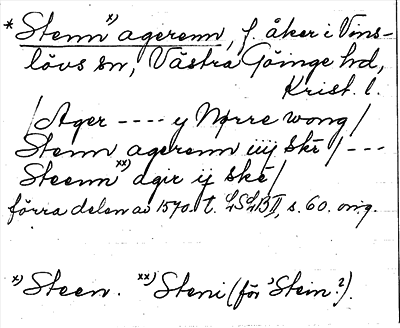 * Stenn x) agerenn, f. åker i Vins-
lövs sn, Västra Göinge hd,
Krist. l.
/Ager ---- y Nørre wong/
Stenn agerenn iiij skē /---
Steenn xx) agir ij skē/
förra delen av 1570. t. LSLB II, s. 60. orig.
x) Steen. xx) Steni (för 'Stein'?).